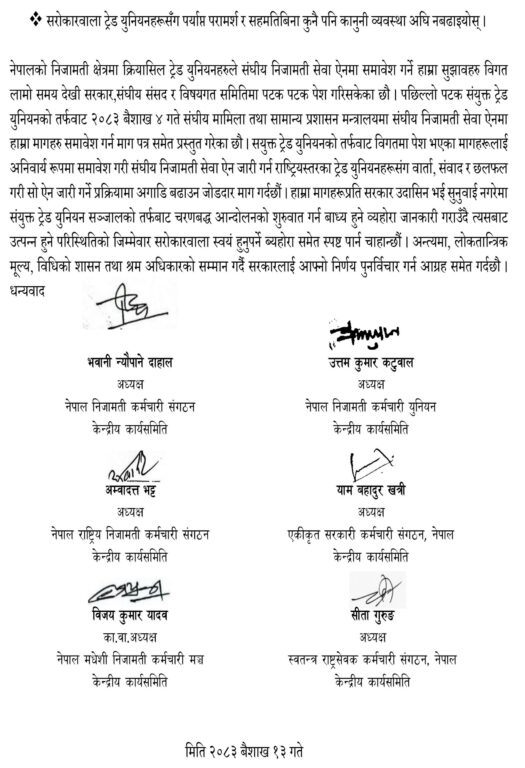 ❖ सरोकारवाला ट्रेड युनियनहरूसँग पर्याप्त परामर्श र सहमतिबिना कुनै पनि कानुनी व्यवस्था अघि नबढाइयोस् ।
नेपालको निजामती क्षेत्रमा क्रियासिल ट्रेड युनियनहरुले संघीय निजामती सेवा ऐनमा समावेश गर्ने हाम्रा सुझावहरु विगत
लामो समय देखी सरकार,संघीय संसद र विषयगत समितिमा पटक पटक पेश गरिसकेका छौ । पछिल्लो पटक संयुक्त ट्रेड
युनियनको तर्फवाट २०८३ बैशाख ४ गते संघीय मामिला तथा सामान्य प्रशासन मन्त्रालयमा संघीय निजामती सेवा ऐनमा
हाम्रा मागहरु समावेश गर्न माग पत्र समेत प्रस्तुत गरेका छौ । सयुक्त ट्रेड युनियनको तर्फवाट विगतमा पेश भएका मागहरुलाई
अनिवार्य रूपमा समावेश गरी संघीय निजामती सेवा ऐन जारी गर्न राष्ट्रियस्तरका ट्रेड युनियनहरुसंग वार्ता, संवाद र छलफल
गरी सो ऐन जारी गर्ने प्रक्रियामा अगाडि बढाउन जोडदार माग गर्दछौं । हाम्रा मागहरुप्रति सरकार उदासिन भई सुनुवाई नगरेमा
संयुक्त ट्रेड युनियन सञ्जालको तर्फबाट चरणबद्ध आन्दोलनको शुरुवात गर्न बाध्य हुने व्यहोरा जानकारी गराउँदै त्यसबाट
उत्पन्न हुने परिस्थितिको जिम्मेवार सरोकारवाला स्वयं हुनुपर्ने ब्यहोरा समेत स्पष्ट पार्न चाहान्छौं । अन्त्यमा, लोकतान्त्रिक
मूल्य, विधिको शासन तथा श्रम अधिकारको सम्मान गर्दै सरकारलाई आफ्नो निर्णय पुनर्विचार गर्न आग्रह समेत गर्दछौ ।
धन्यवाद
भवानी न्यौपाने दाहाल
उत्तम कुमार कटुवाल
अध्यक्ष
अध्यक्ष
नेपाल निजामती कर्मचारी संगठन
नेपाल निजामती कर्मचारी युनियन
केन्द्रीय कार्यसमिति
केन्द्रीय कार्यसमिति
अम्वादत्त भट्ट
याम बहादुर खत्री
अध्यक्ष
अध्यक्ष
नेपाल राष्ट्रिय निजामती कर्मचारी संगठन
एकीकृत सरकारी कर्मचारी संगठन, नेपाल
केन्द्रीय कार्यसमिति
केन्द्रीय कार्यसमिति
विजय कुमार यादव
सीता गुरुङ
का.वा.अध्यक्ष
अध्यक्ष
नेपाल मधेशी निजामती कर्मचारी मञ्च
स्वतन्त्र राष्ट्रसेवक कर्मचारी संगठन, नेपाल
केन्द्रीय कार्यसमिति
केन्द्रीय कार्यसमिति
मिति २०८३ बैशाख १३ गते